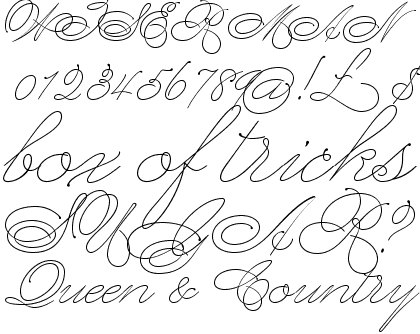 WISER MAN
0123456789@!£ $
box of tricks
SUGAR?
Queen & Country